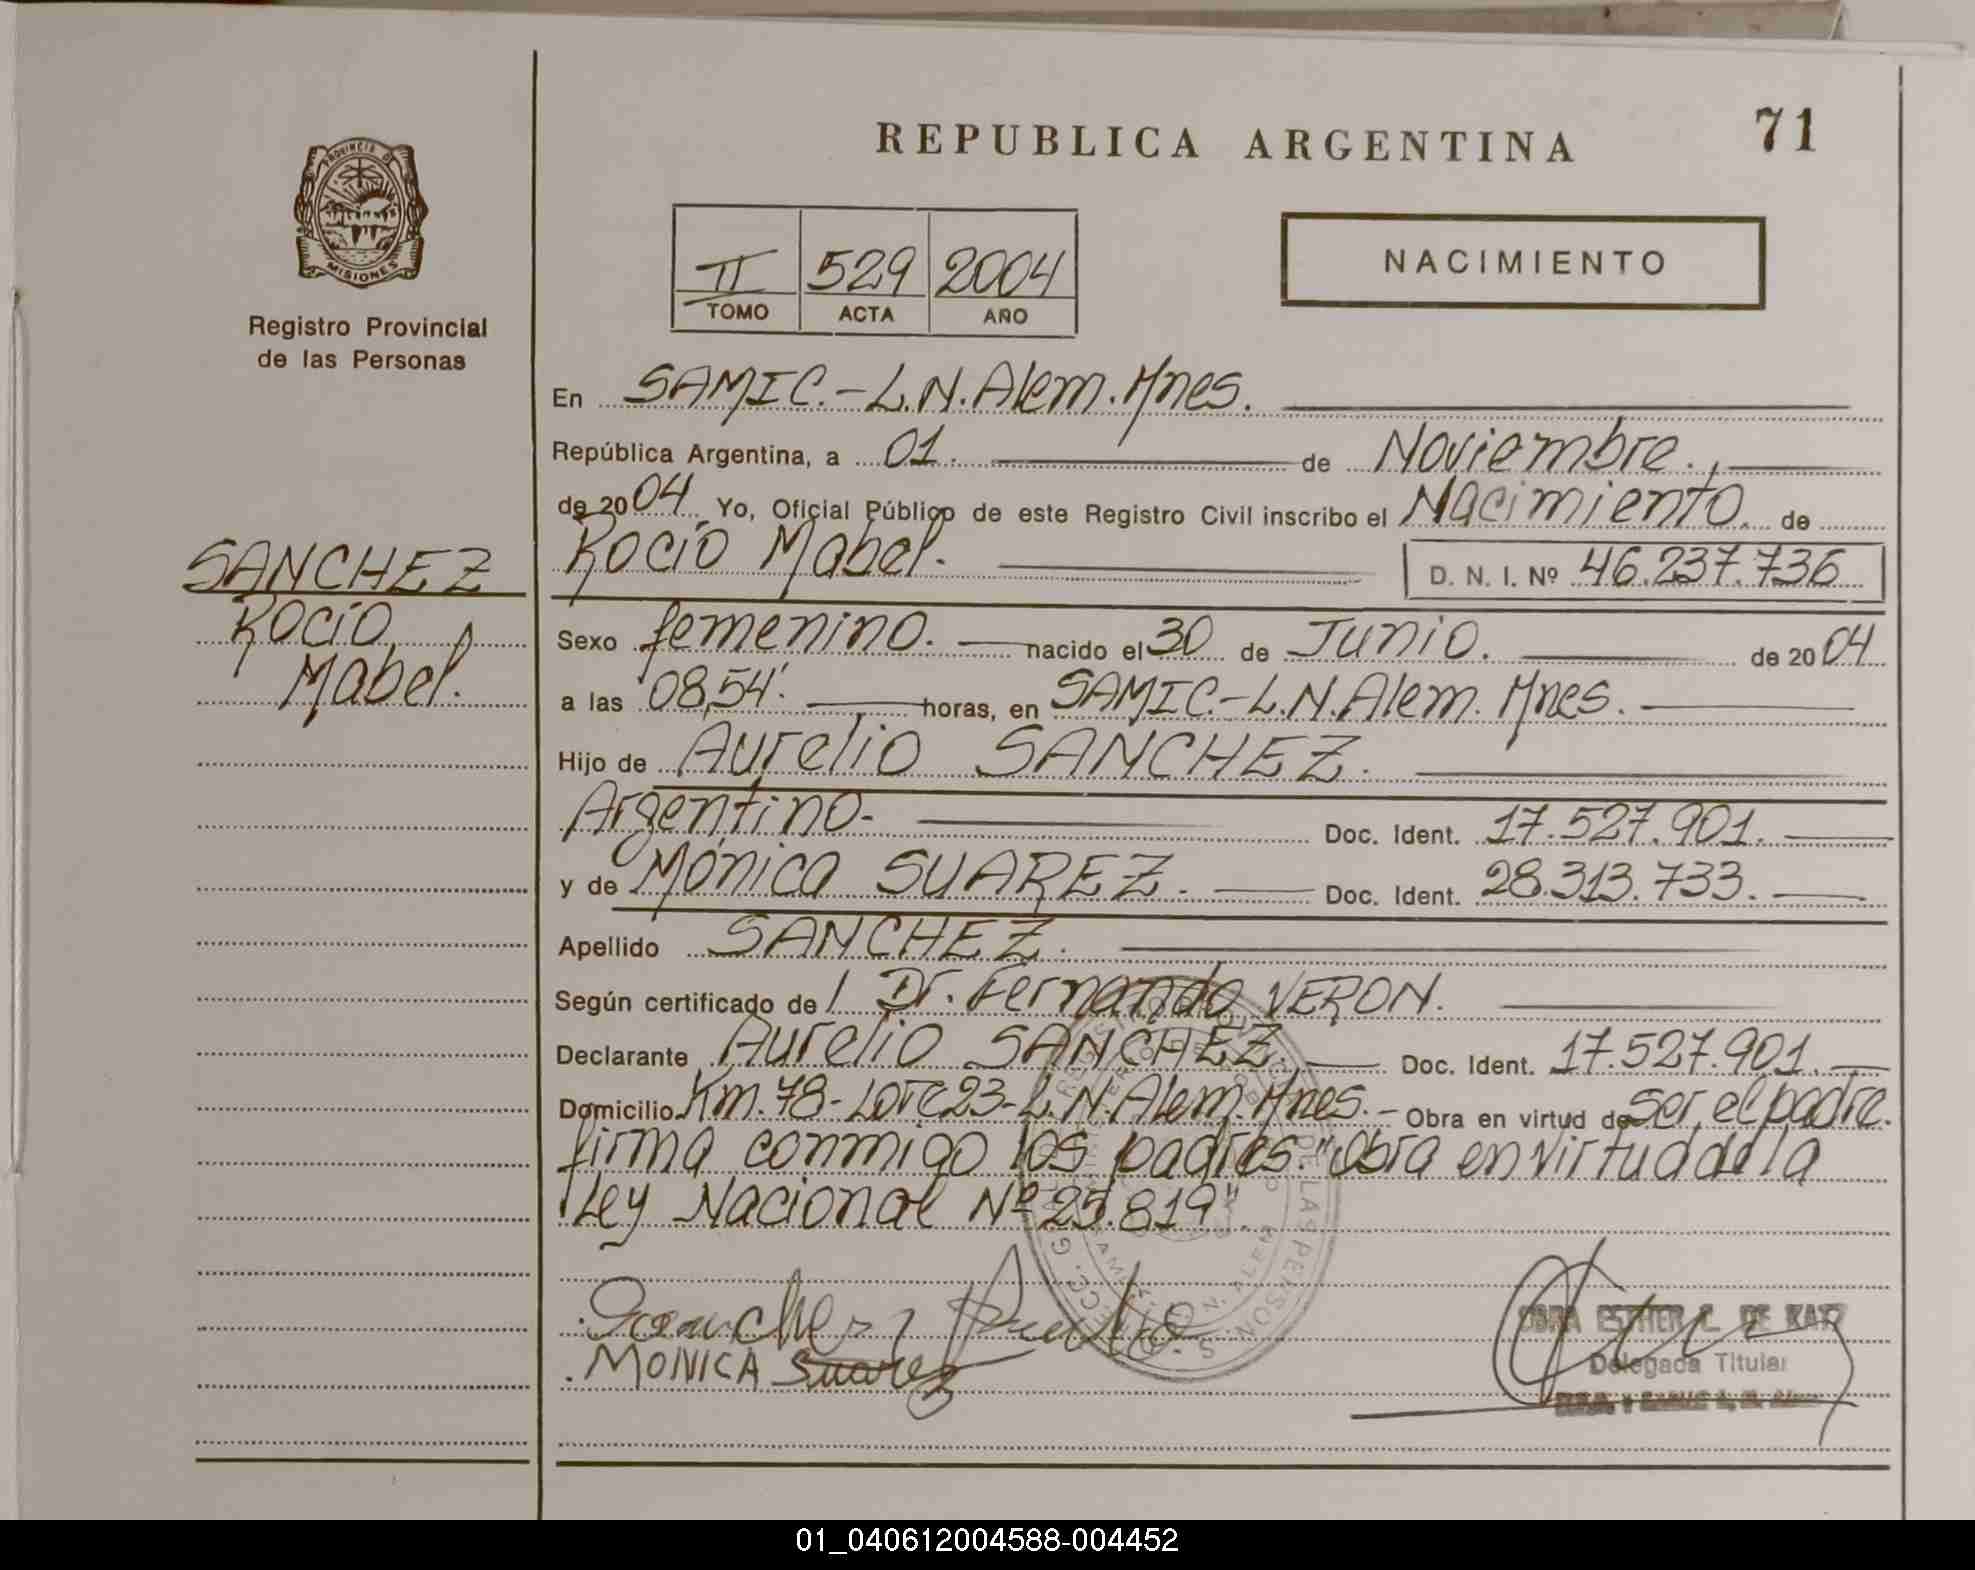 REPUBLICA ARGENTINA
71
PROVINCIA D
MISIONES
Registro Provincial
de las Personas
II 529 2004
TOMO ACTA AÑO
NACIMIENTO
En SAMIC.-L.N.Alem.Mnes.
República Argentina, a 01. de Noviembre.,
de 2004. Yo, Oficial Público de este Registro Civil inscribo el Nacimiento. de
Rocío Mabel. D. N. I. Nº 46.237.736
SANCHEZ
Rocío
Mabel.
Sexo femenino. nacido el 30 de Junio. de 2004
a las 08,54'. horas, en SAMIC.-L.N.Alem. Mnes.
Hijo de Aurelio SANCHEZ.
Argentino.- Doc. Ident. 17.527.901.
y de Mónica SUAREZ. Doc. Ident. 28.313.733.
Apellido SANCHEZ.
Según certificado de Dr. Fernando VERON.
Declarante Aurelio SANCHEZ. Doc. Ident. 17.527.901.
Domicilio Km.78-Lote 23-L.N.Alem.Mnes.- Obra en virtud de ser el padre.
firma conmigo los padres."Obra en virtud de la
Ley Nacional Nº 25.819".
Sanchez Aurelio
MONICA Suarez
OBRA ESTHER C. DE KATZ
Delegada Titular
01_040612004588-004452